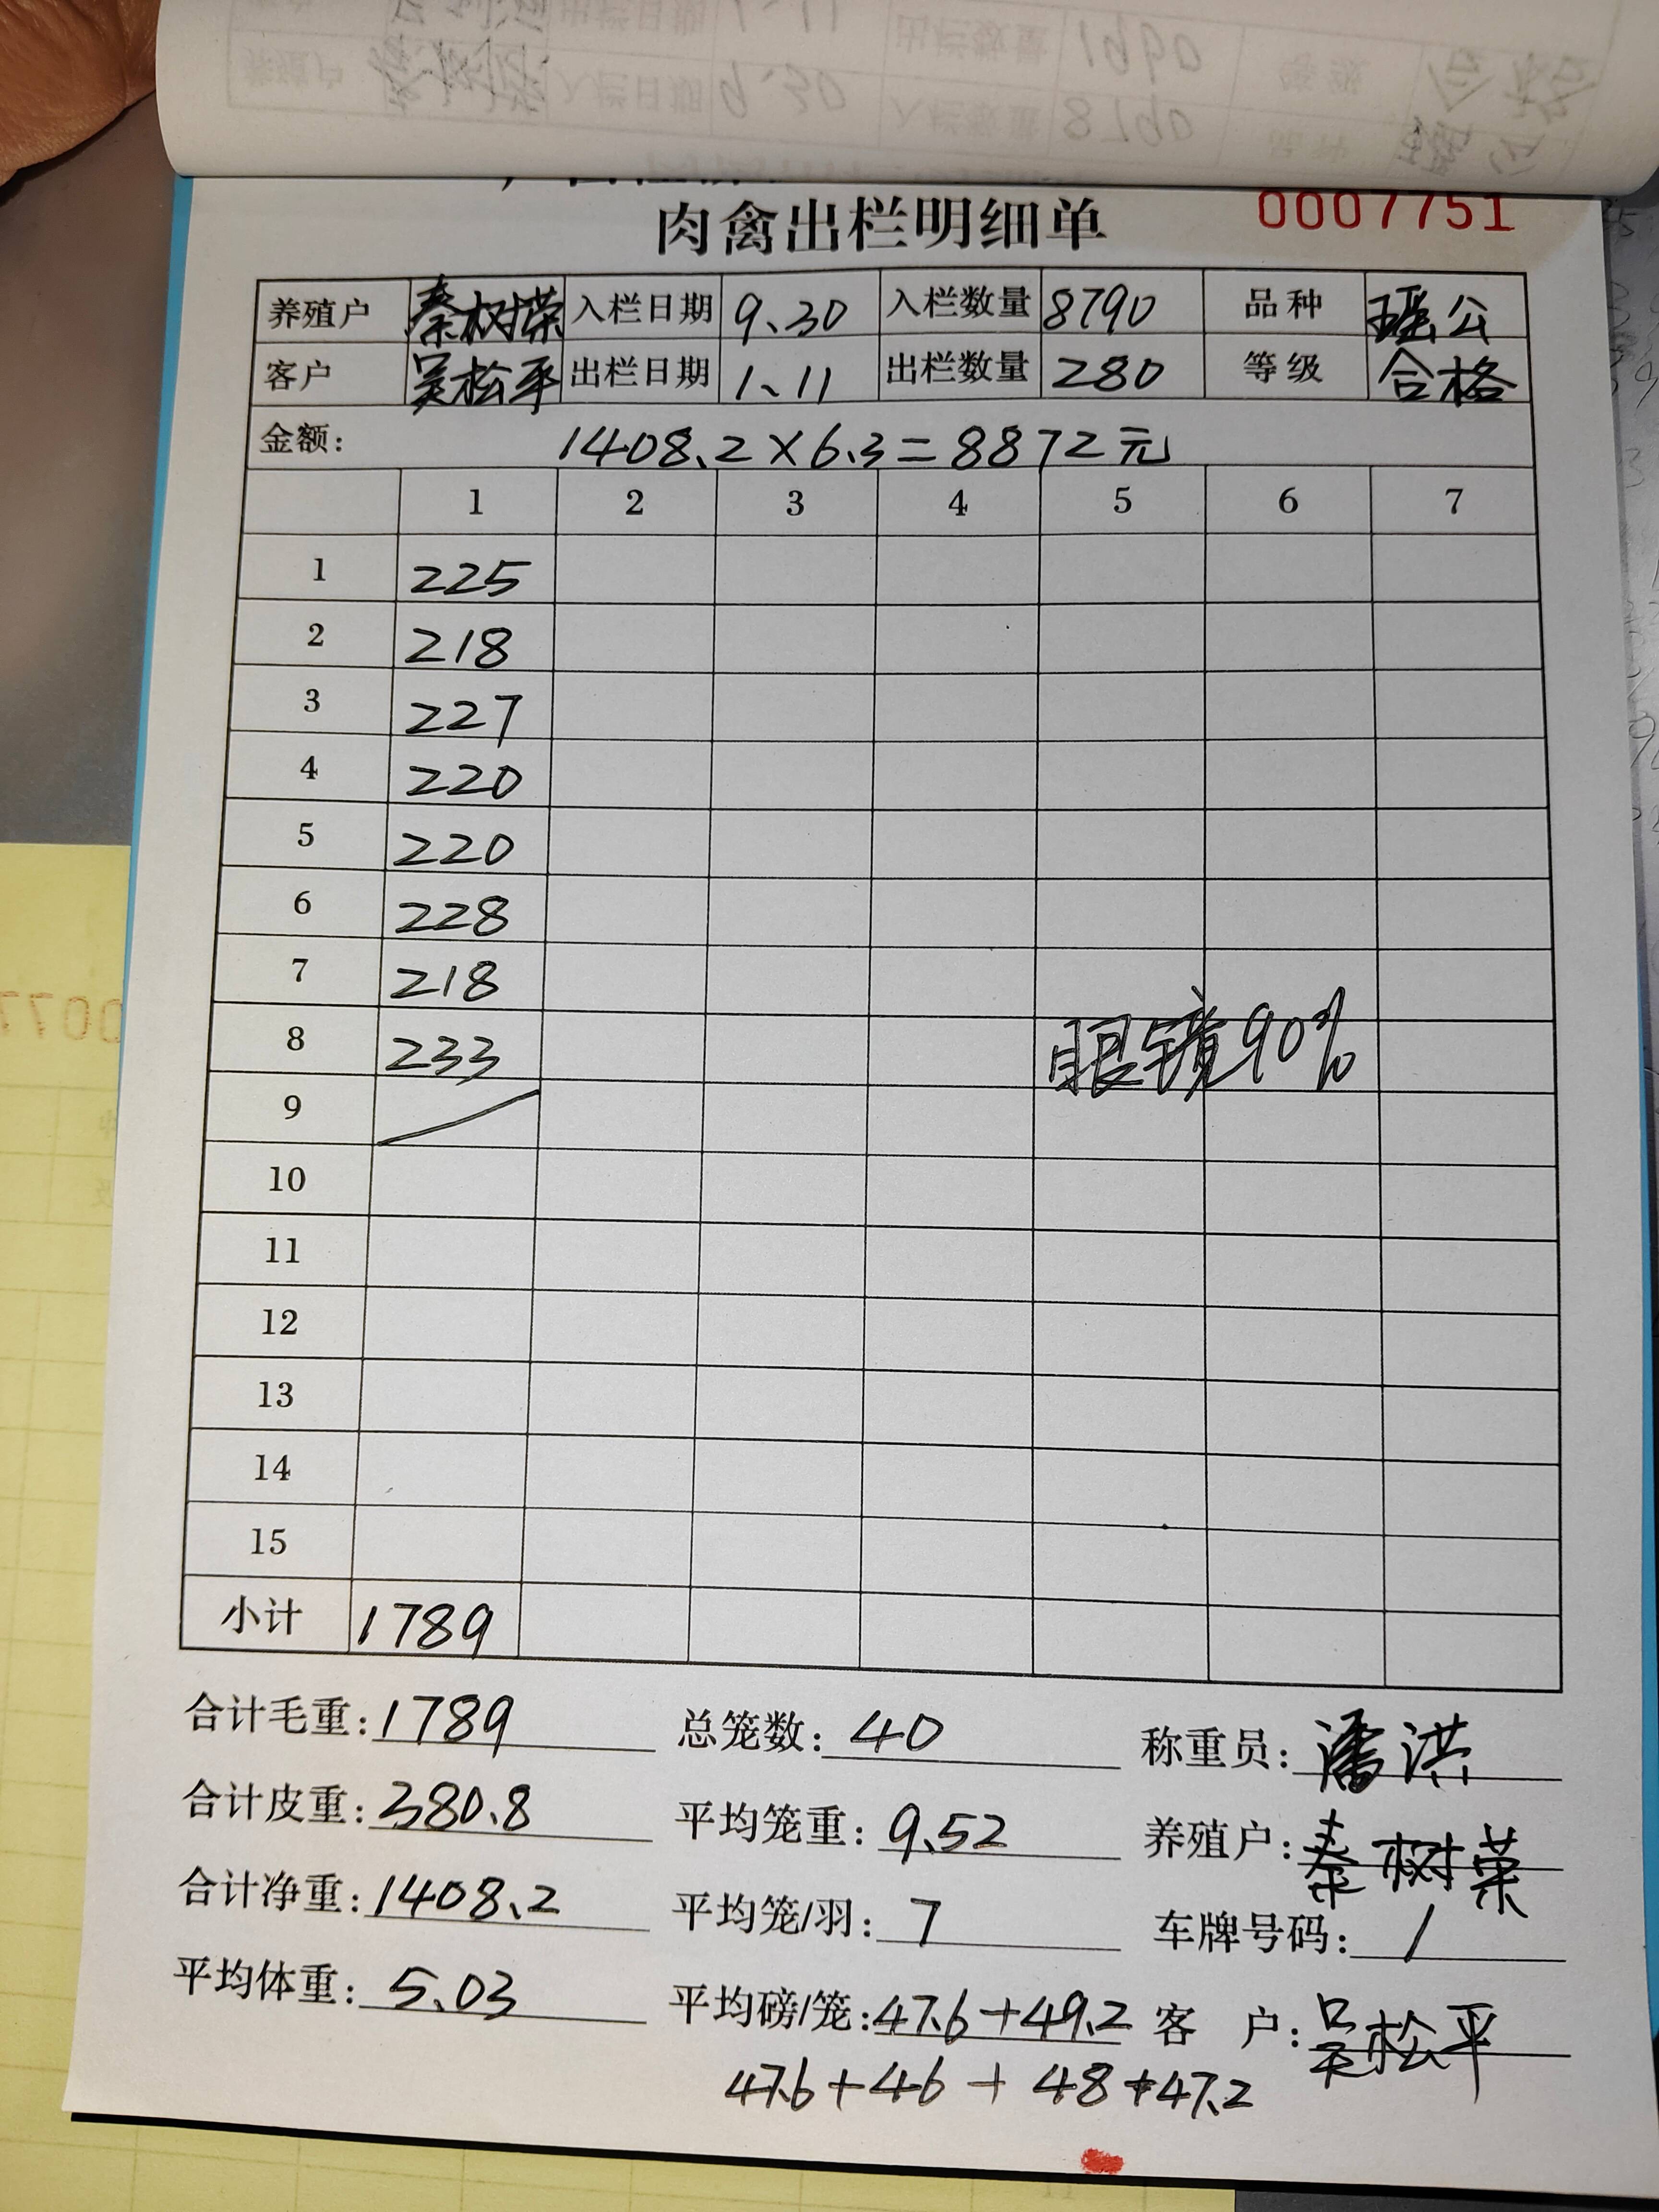 肉禽出栏明细单 0007751
养殖户 秦树荣 入栏日期 9.30 入栏数量 8790 品种 瑶公
客户 吴松平 出栏日期 1.11 出栏数量 280 等级 合格
金额: 1408.2×6.3=8872元
1 2 3 4 5 6 7
1 225
2 218
3 227
4 220
5 220
6 228
7 218
8 233 眼镜90%
9
10
11
12
13
14
15
小计 1789
合计毛重:1789 总笼数:40 称重员:潘洪
合计皮重:380.8 平均笼重:9.52 养殖户:秦树荣
合计净重:1408.2 平均笼/羽:7 车牌号码:/
平均体重:5.03 平均磅/笼:47.6+49.2 客 户:吴松平
47.6+46+48+47.2